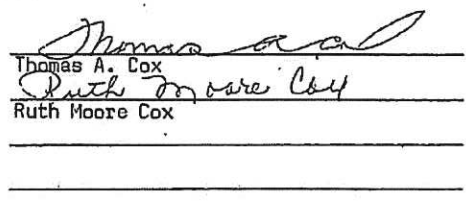 Thomas A. Cox
Thomas A. Cox
Ruth Moore Cox
Ruth Moore Cox